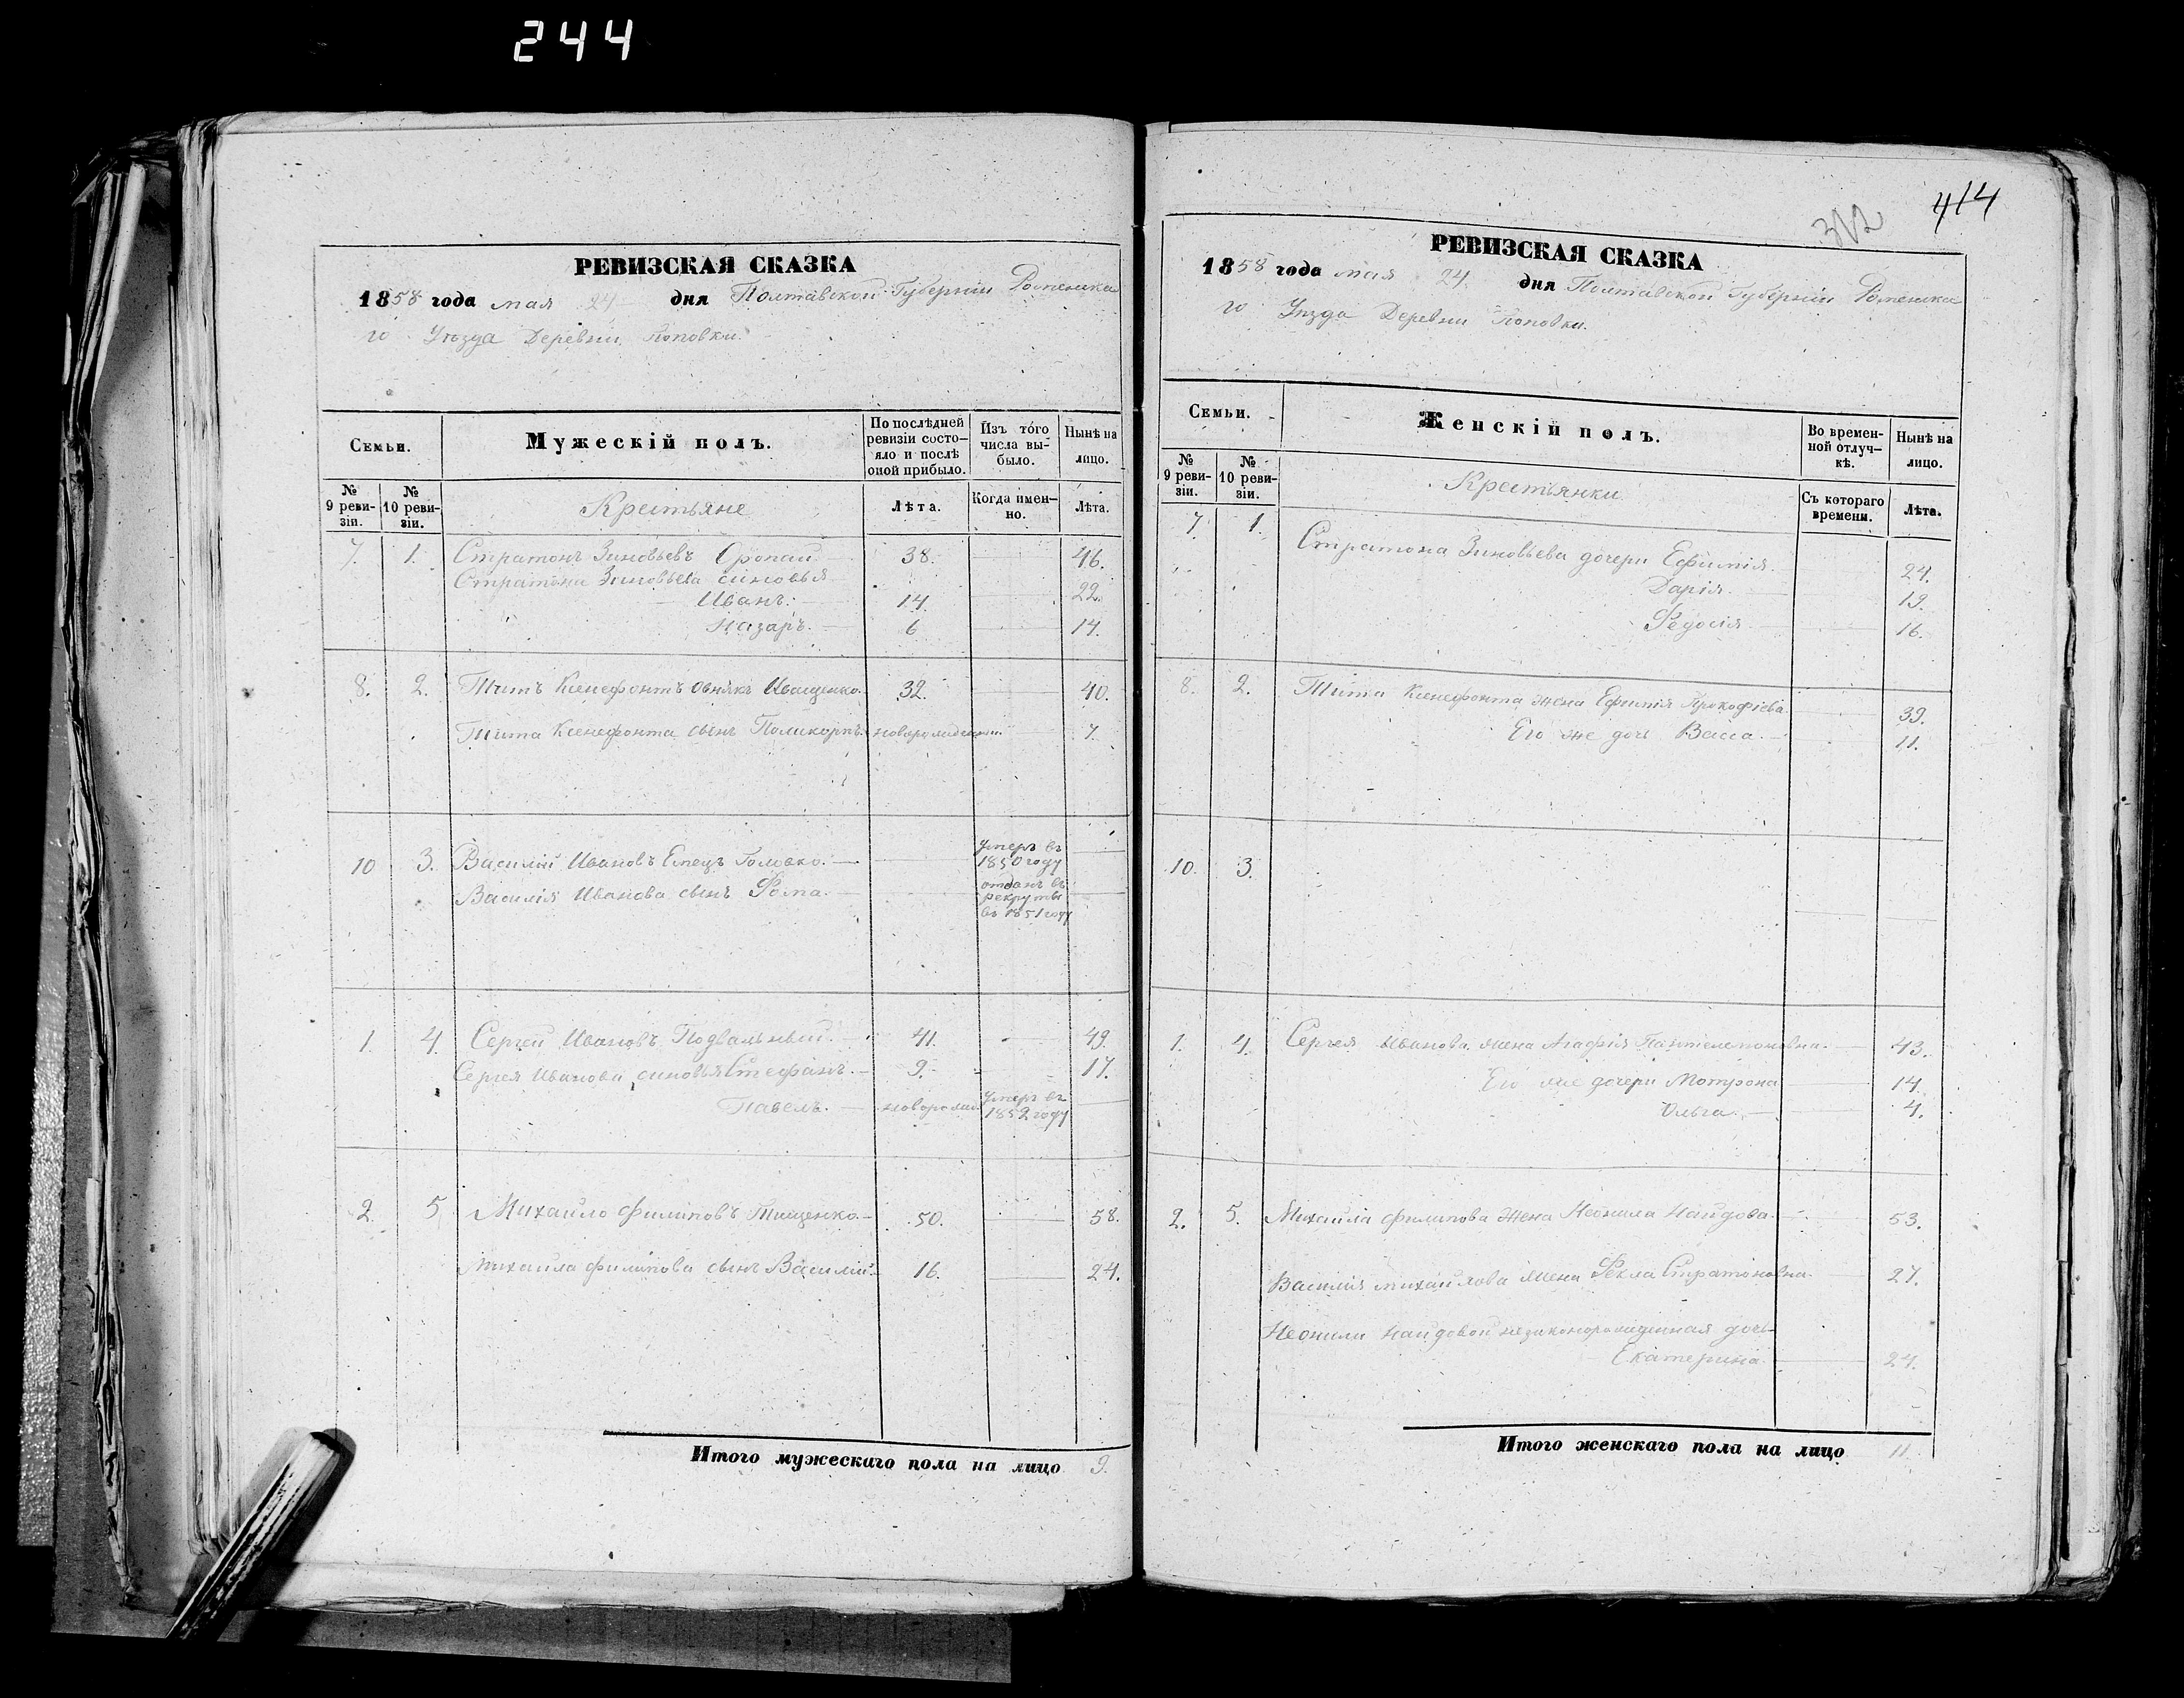 244
РЕВИЗСКАЯ СКАЗКА
1858 года мая 24 дня Полтавской Губерніи Роменска
го Уѣзда Деревни Поповки.
Семьи.
Мужескій полъ.
По послѣдней ревизіи состо-яло и послѣ оной прибыло.
Изъ того числа вы-было.
Нынѣ на лицо.
№ 9 реви-зіи.
№ 10 реви-зіи.
Крестьяне
Лѣта.
Когда имен-но.
Лѣта.
7. 1. Стратонъ Зиновьевъ 38. 46.
Стратона Зиновьева сыновья
Иванъ. 14. 22.
Назаръ. 6 14.
8. 2. Титъ Ксенефонтъ Иващенко. 32. 40.
Тита Ксенефонта сынъ Поликарпъ. новорожденный 7.
10 3. Василій Ивановъ Емецъ Головко. умеръ въ 1850 году
Василія Иванова сынъ Фома. отданъ въ рекруты въ 1851 году
1. 4. Сергей Ивановъ Подвальный. 41. 49.
Сергея Иванова сыновья Стефанъ. 9. 17.
Павелъ. новорожд. умеръ въ 1852 году
2. 5 Михайло Филиповъ Тищенко. 50. 58.
Михайла Филипова сынъ Василій. 16. 24.
Итого мужескаго пола на лицо 9.
312
414
РЕВИЗСКАЯ СКАЗКА
1858 года мая 24. дня Полтавской Губерніи Роменска
го Уѣзда Деревни Поповки.
Семьи.
Женскій полъ.
Во времен-ной отлуч-кѣ.
Нынѣ на лицо.
№ 9 реви-зіи.
№ 10 реви-зіи.
Крестьянки
Съ котораго времени.
Лѣта.
7 1.
Стратона Зиновьева дочери Ефимія. 24.
Дарія. 19.
Федосія 16.
8. 2. Тита Ксенефонта жена Ефимія Прокофіева 39.
Его же дочь Васса. 11.
10. 3.
1. 4. Сергея Иванова жена Агафія Пантелемоновна. 43.
Его же дочери Мотрона 14.
Ольга. 4.
2. 5. Михайла Филипова жена Неонила Наидова. 53.
Василія Михайлова жена Фекла Стратоновна. 27.
Неонили Наидовой незаконорожденная дочь
Екатерина. 24.
Итого женскаго пола на лицо 11.